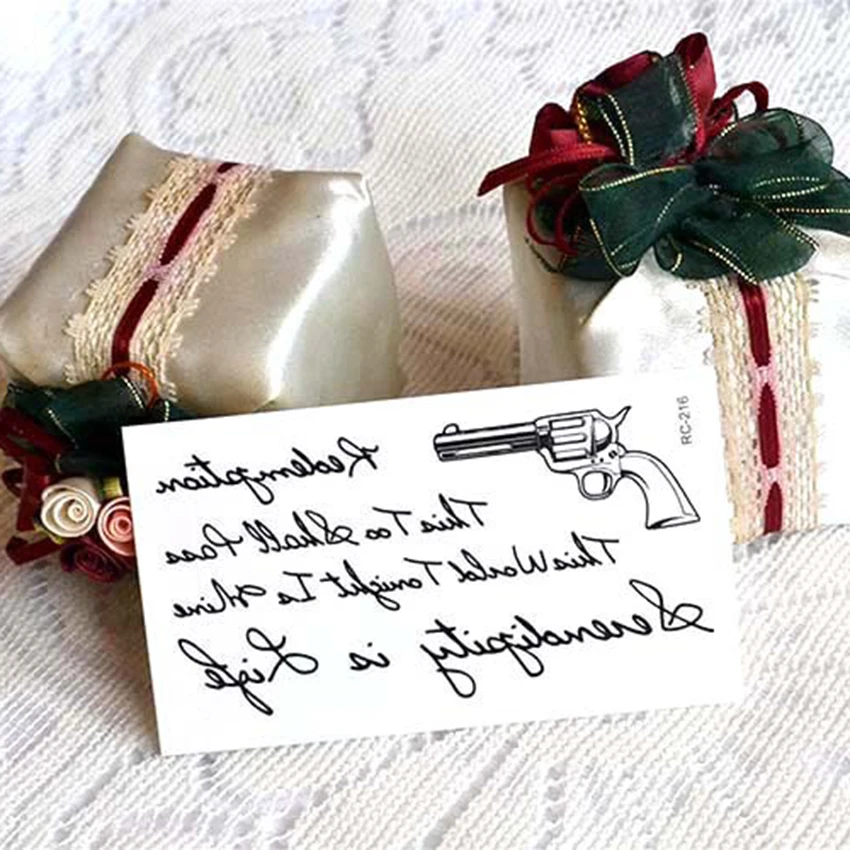 Redemption
RC-216
This Too Shall Pass
This World Tonight Is Mine
Serendipity is Life